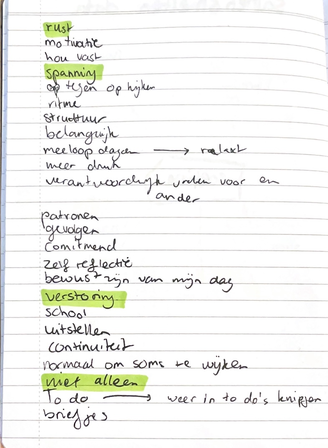 rust
motivatie
hou vast
spanning
op tegen op kijken
ritme
structuur
belangrijk
meeloop dagen → relaxt
meer druk
verantwoordelijk voelen voor een
ander
patronen
gevolgen
Comitmend
zelf reflectie
bewust zijn van mijn dag
verstoring
school
uitstellen
continuiteit
normaal om soms te wijken
niet alleen
To do → weer in to do's knippen
briefjes